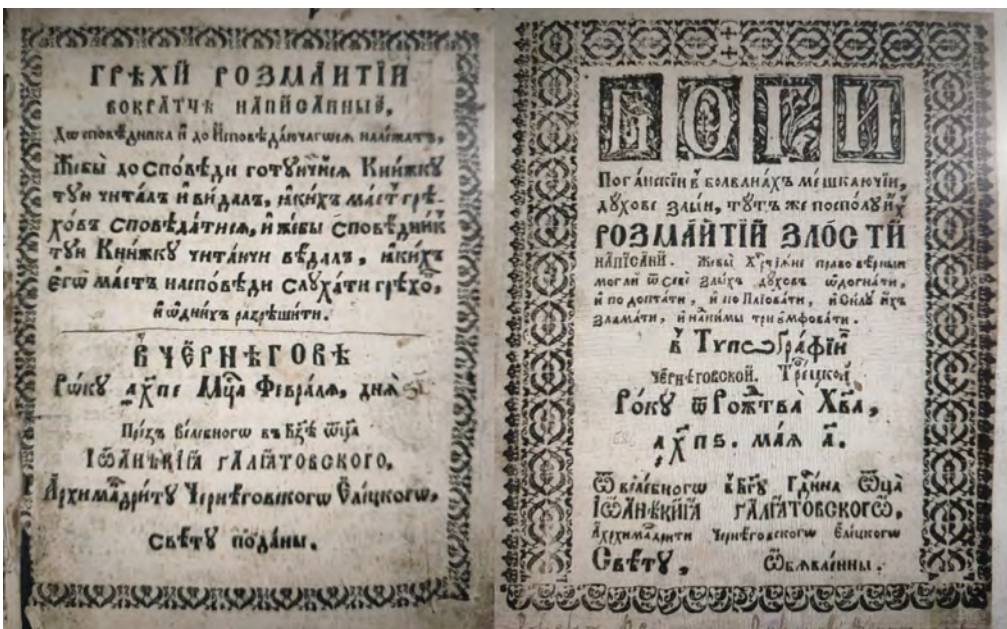 ГРѢХИ РОЗМАИТІИ
ВОКРАТЦѢ НАПИСАННЫЕ,
До сповѣдника и до Исповѣдаючагося належатъ,
Жебы до Сповѣди готуючійся Книжку
тую читалъ и видалъ, якихъ маетъ грѣ-
ховъ Сповѣдатися, и жебы Сповѣдник
тую Книжку читаючи вѣдалъ, якихъ
егѡ маетъ насповѣди слухати грѣхо,
и ѿ нихъ разрѣшити.
В ЧЕРНѢГОВѢ
Рѡку ахпе Мца Февраля, дня
През велебногѡ въ Бгѣ Ѿца
ІѠАНѢКІА ГАЛЯТОВСКОГО,
Архимадриту Чернѣговскогѡ Елецкогѡ,
свѣту поданы.
БОГИ
Поганскіи в болванахъ мешкаючіи,
духове злыи, тутъ же посполу ихъ
РОЗМАИТІИ ЗЛОСТИ
НАПИСАНИ. Жебы Хрстіяне право вѣрныи
могли ѿ себе Злыхъ духов ѿдогнати,
и по доптати, и по плювати, и силу ихъ
зламати, и на ними триѡмфовати.
в Типографіи
чернѣговской. Трецкой
Року ѿ Рожтва Хва,
ахпѕ. мая а.
Ѿ велебногѡ в Бгу Гдина Ѿца
ІѠАНѢКИІА ГАЛЯТОВСКОГѠ,
Архимадрити Чернѣговскогѡ Елецкогѡ
Свѣту, Ѿбявленны.